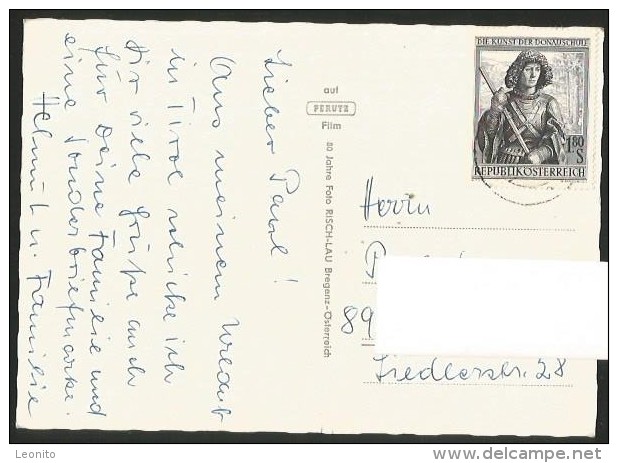 Lieber Paul!
Aus meinem Urlaub
in Tirol schicke ich
Dir viele Grüße auch
für Deine Familie und
eine Sonderbriefmarke.
Helmut u. Familie
auf
PERUTZ
Film
80 Jahre Foto RISCH-LAU Bregenz-Österreich
DIE KUNST DER DONAUSCHULE
1.80
S
REPUBLIK ÖSTERREICH
Herrn
89
Siedlerstr. 28
Leonito
delcampe.net